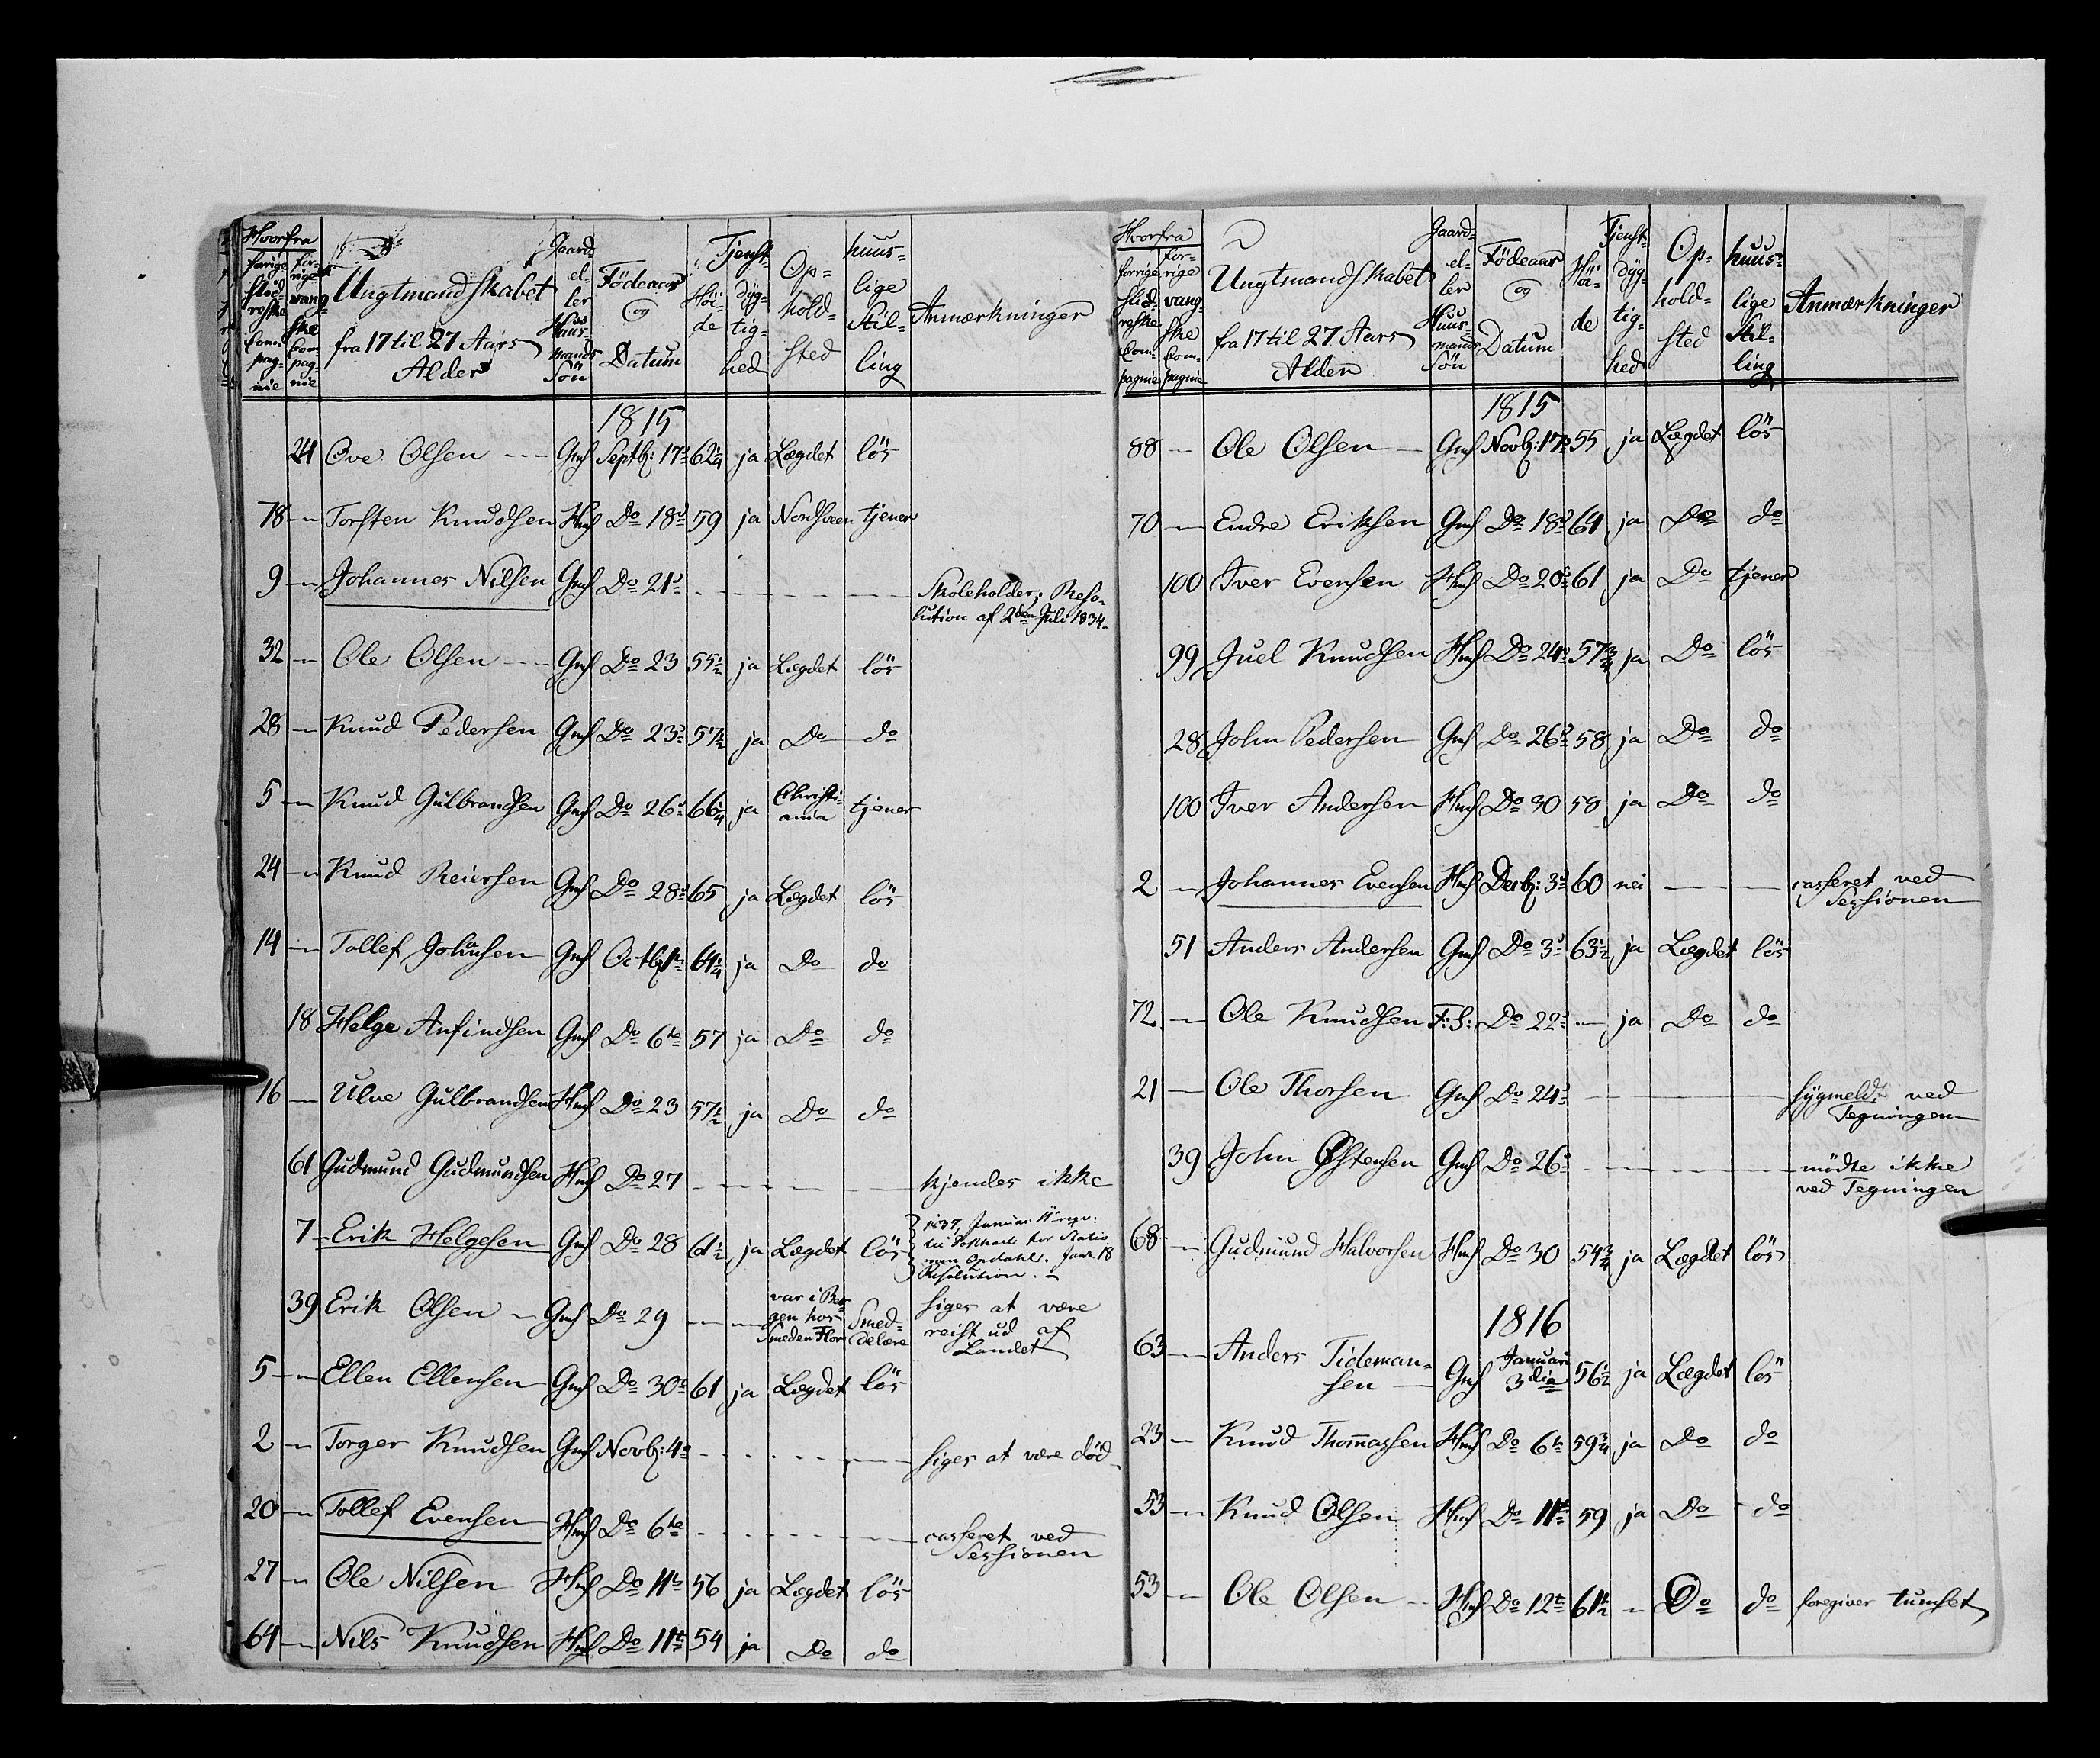 Hvorfra
forrige Slid-reske Com-pag-nie | for-rige vang-ske Com-pag-nie | Ungtmandskabet fra 17 til 27 Aars Alder | Gaard- el-ler Huus-mands Sön | Födeaar og Datum | Höi-de | Tjenst-dyg-tig-hed | Op-hold-sted | huus-lige Stil-ling | Anmærkninger
1815
24 Ove Olsen Gms Septb: 17de 62 1/4 ja Lægdet lös
78 - Torsten Knudsen Hms Do 18d 59 ja Nordsveen tjener
9 - Johannes Nilsen Gms Do 21d - - - Skoleholder, Reso-
lution af 2den Juli 1834
32 - Ole Olsen Gms Do 23 55 1/2 ja Lægdet lös
28 - Knud Pedersen Gms Do 23d 57 1/2 ja Do do
5 - Knud Gulbrandsen Gms Do 26d 66 1/4 ja Christi-
ania tjener
24 - Knud Reiersen Gms Do 28d 65 ja Lægdet lös
14 - Tollef Johansen Gms Octb 1te 64 1/4 ja Do do
18 Helge Anfindsen Gms Do 6te 57 ja Do do
16 - Ulve Gulbrandsen Hms Do 23 57 1/2 ja Do do
61 Gudmund Gudmundsen Hms Do 27 - - - kjendes ikke
7 - Erik Helgesen Gms Do 28 61 1/2 ja Lægdet lös 1837, Januar 11
Opdahl. Janr. 18
Resolution.
39 Erik Olsen Gms Do 29 - - var i Ber-
gen hos
Smeden Flor Smed-
delære siges at være
reist ud af
Landet
5 - Ellen Ellensen Gms Do 30d 61 ja Lægdet lös
2 - Torger Knudsen Gms Novb: 4d - - - siges at være död
20 - Tollef Evensen Hms Do 6te - - - casseret ved
Sessionen
27 - Ole Nilsen Hms Do 11te 56 ja Lægdet lös
64 - Nils Knudsen Hms Do 11te 54 ja Do do
Hvorfra
forrige Slid-reske Com-pagnie | for-rige vang-ske Com-pagnie | Ungtmandskabet fra 17 til 27 Aars Alder | Gaard- el-ler Huus-mands Sön | Födeaar og Datum | Höi-de | Tjenst-dyg-tig-hed | Op-hold-sted | huus-lige Stil-ling | Anmærkninger
1815
88 - Ole Olsen Gms Novb: 17d 55 ja Lægdet lös
70 - Endre Eriksen Gms Do 18d 64 ja Do do
100 Iver Evensen Hms Do 20d 61 ja Do tjener
99 Juel Knudsen Hms Do 24d 57 3/4 ja Do lös
28 John Pedersen Gms Do 26d 58 ja Do do
100 Iver Andersen Hms Do 30 58 ja Do do
2 - Johannes Evensen Hms Decb: 3d 60 nei - - casseret ved
Sessionen
51 Anders Andersen Gms Do 3d 63 1/2 ja Lægdet lös
72 - Ole Knudsen F: S: Do 22d - ja Do do
21 - Ole Thorsen Gms Do 24d - - - sygmeldt ved
Tegningen
39 John Østensen Gms Do 26d - - - mödte ikke
ved Tegningen
68 - Gudmund Halvorsen Hms Do 30 54 3/4 ja Lægdet lös
1816
63 - Anders Tideman-
sen Gms Januar
3die 56 1/2 ja Lægdet lös
23 - Knud Thomassen Hms Do 6te 59 3/4 ja Do do
53 - Knud Olsen Hms Do 11te 59 ja Do do
53 - Ole Olsen Hms Do 12te 61 1/2 - Do do foregiver tumset